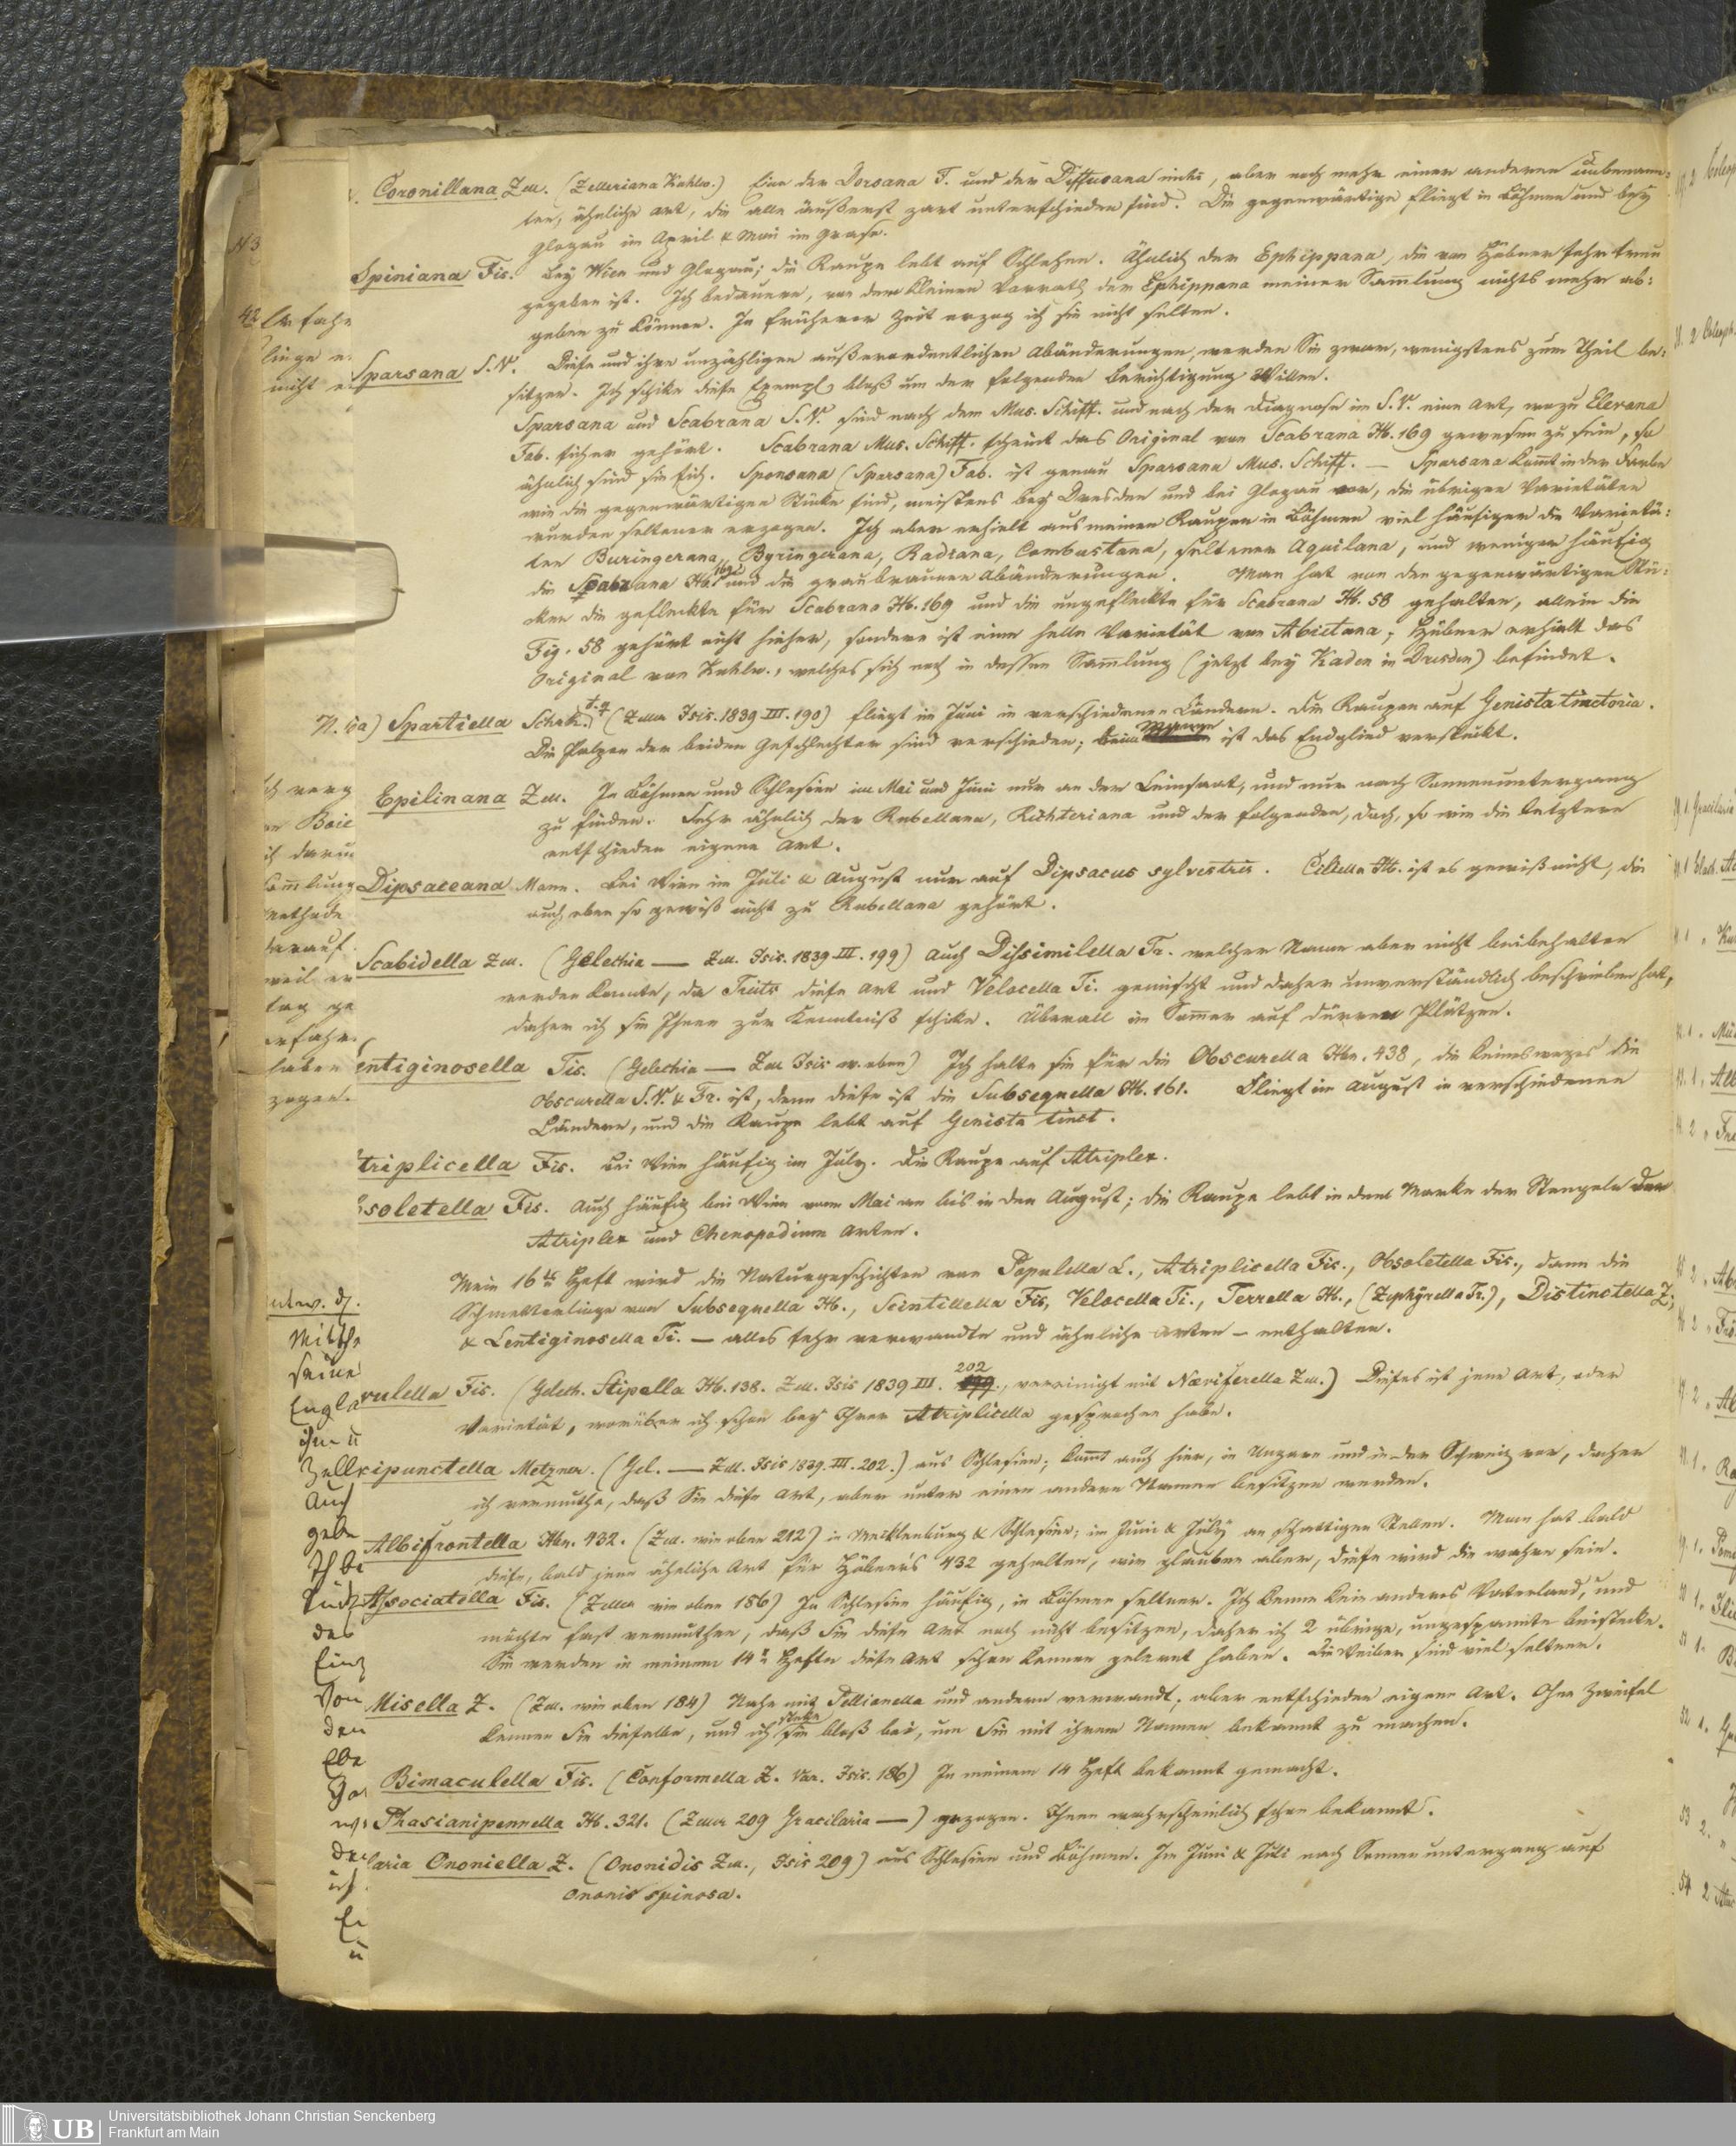 Coronillana Zell. (Zelleriana Kuhlw.) Eine der Dorsana F. und der Diffusana nicht, aber noch mehr einer anderen unbenann=
ten, ähnliche Art, die alle äußerst zart unterschieden sind. Die gegenwärtige fliegt in Böhmen und bey
Glogau im April & Mai im Grase.
Spiniana Fis. Bey Wien und Glogau; die Raupe lebt auf Schlehen. Ähnlich der Ephippana, die von Hübner sehr treu
gegeben ist. Ich bedauere, von dem kleinen Vorrath der Ephippana meiner Sammlung nichts mehr ab=
geben zu können. In früherer Zeit erzog ich sie nicht selten.
Sparsana S.V. Diese und ihre unzähligen außerordentlichen Abänderungen, werden Sie zwar, wenigstens zum Theil be=
sitzen. Ich schike diese Exempl. bloß um der folgenden Berichtigung Willen.
Sparsana und Scabrana S.V. sind nach dem Mus. Schiff. und nach der Diagnose im S.V. eine Art, wozu Elevana
Fab. sicher gehört. Scabrana Mus. Schiff. scheint das Original von Scabrana H. 169 gewesen zu sein, so
ähnlich sind sie sich. Sponsana (Sparsana) Fab. ist genau Sparsana Mus. Schiff. — Sparsana kommt in der Farbe
wie die gegenwärtigen Stücke sind, meistens bey Dresden und bei Glogau vor, die übrigen Varietäten
wurden seltener erzogen. Ich aber erhielt aus meinen Raupen in Böhmen viel häufiger die Varietä=
ten Buringerana, Byringerana, Radiana, Combustana, seltener Aquilana, und weniger häufig
die 169 und die graubraunen Abänderungen. Man hat von den gegenwärtigen Stü=
cken die gefleckte für Scabrana H. 169 und die ungefleckte für Scabrana H. 58 gehalten, allein die
Fig. 58 gehört nicht hieher, sondern ist eine helle Varietät von Abietana; Hübner erhielt das
Original von Kuhlw., welches sich noch in dessen Sammlung (jetzt bey Kaden in Dresden) befindet.
Spartiella Schrk. (Zeller Isis. 1839 III. 190) fliegt im Juni in verschiedenen Ländern. Die Raupen auf Genista tinctoria.
Die Palpen der beiden Geschlechter sind verschieden; beim Manne ist das Endglied versteckt.
Epilinana Zell. In Böhmen und Schlesien im Mai und Juni nur an der Leinsaat, und nur nach Sonnenuntergang
zu finden. Sehr ähnlich der Rubellana, Richteriana und der folgenden, doch, so wie die letztere
entschieden eigene Art.
Dipsaceana Mann. Bei Wien im Juli & August nur auf Dipsacus sylvestris. Ciliella H. ist es gewiß nicht, die
auch eben so gewiß nicht zu Rubellana gehört.
Scabidella Zell. (Gelechia — Zell. Isis. 1839 III. 199) auch Dissimilella Tr. welcher Name aber nicht beibehalten
werden konnte, da Treits diese Art und Velocella Ti. gemischt und daher unverständlich beschrieben hat,
daher ich sie Ihnen zur Kenntniß schike. Überall im Sommer auf dürren Plätzen.
entiginosella Tis. (Gelechia — Zell Isis w. oben) Ich halte sie für die Obscurella Hbn. 438, die keineswegs die
Obscurella S.V. & Tr. ist, denn diese ist die Subsequella H. 161. Fliegt im August in verschiedenen
Ländern, und die Raupe lebt auf Genista tinct.
triplicella Fis. Bei Wien häufig im July. Die Raupe auf Atriplex.
soletella Fis. Auch häufig bei Wien vom Mai an bis in den August; die Raupe lebt in dem Marke der Stengeln der
Atriplex und Chenopodium Arten.
Mein 16tes Heft wird die Naturgeschichten von Populella L., Atriplicella Fis., Obsoletella Fis., dann die
Schmetterlinge von Subsequella H., Scintillella Fis, Velocella Ti., Terrella H., (Zephyrella Tr.), Distinctella Z.,
& Lentiginosella Ti. — alles sehr verwandte und ähnliche Arten — enthalten.
vulella Fis. (Gelech. Stipella H. 138. Zell. Isis 1839 III. 202, vereinigt mit Næviferella Zell.) Dieses ist jene Art, oder
Varietät, worüber ich schon bey Ihrer Atriplicella gesprochen habe.
cipunctella Metzner. (Gel. — Zell. Isis 1839. III. 202.) aus Schlesien; kommt auch hier, in Ungarn und in der Schweiz vor, daher
ich vermuthe, daß Sie diese Art, aber unter einen andern Namen besitzen werden.
Albifrontella Hbn. 432. (Zell. wie oben 212) in Mecklenburg & Schlesien; im Juni & July an schattigen Stellen. Man hat bald
diese, bald jene ähnliche Art für Hübners 432 gehalten, wir glauben aber, diese wird die wahre sein.
Associatella Fis. (Zeller wie oben 186) In Schlesien häufig, in Böhmen seltner. Ich kenne kein anderes Vaterland, und
möchte fast vermuthen, daß Sie diese Art noch nicht besitzen, daher ich 2 übrige, ungespannte beistecke.
Sie werden in meinem 14n Hefte diese Art schon kennen gelernt haben. Die Weiber sind viel seltner.
Misella Z. (Zell. wie oben 184) Nahe mit Pellionella und andern verwandt, aber entschieden eigene Art. Ohne Zweifel
kennen Sie dieselbe, und ich steke sie bloß bei, um Sie mit ihrem Namen bekannt zu machen.
Bimaculella Fis. (Conformella Z. Var. Isis. 186) In meinem 14 Heft bekannt gemacht.
Phasianipennella H. 321. (Zeller 209 Gracilaria —) gezogen. Ihnen wahrscheinlich schon bekannt.
laria Ononiella Z. (Ononidis Zell., Isis 209) aus Schlesien und Böhmen. Im Juni & Juli nach Sonnenuntergang auf
Ononis spinosa.
UB Universitätsbibliothek Johann Christian Senckenberg
Frankfurt am Main